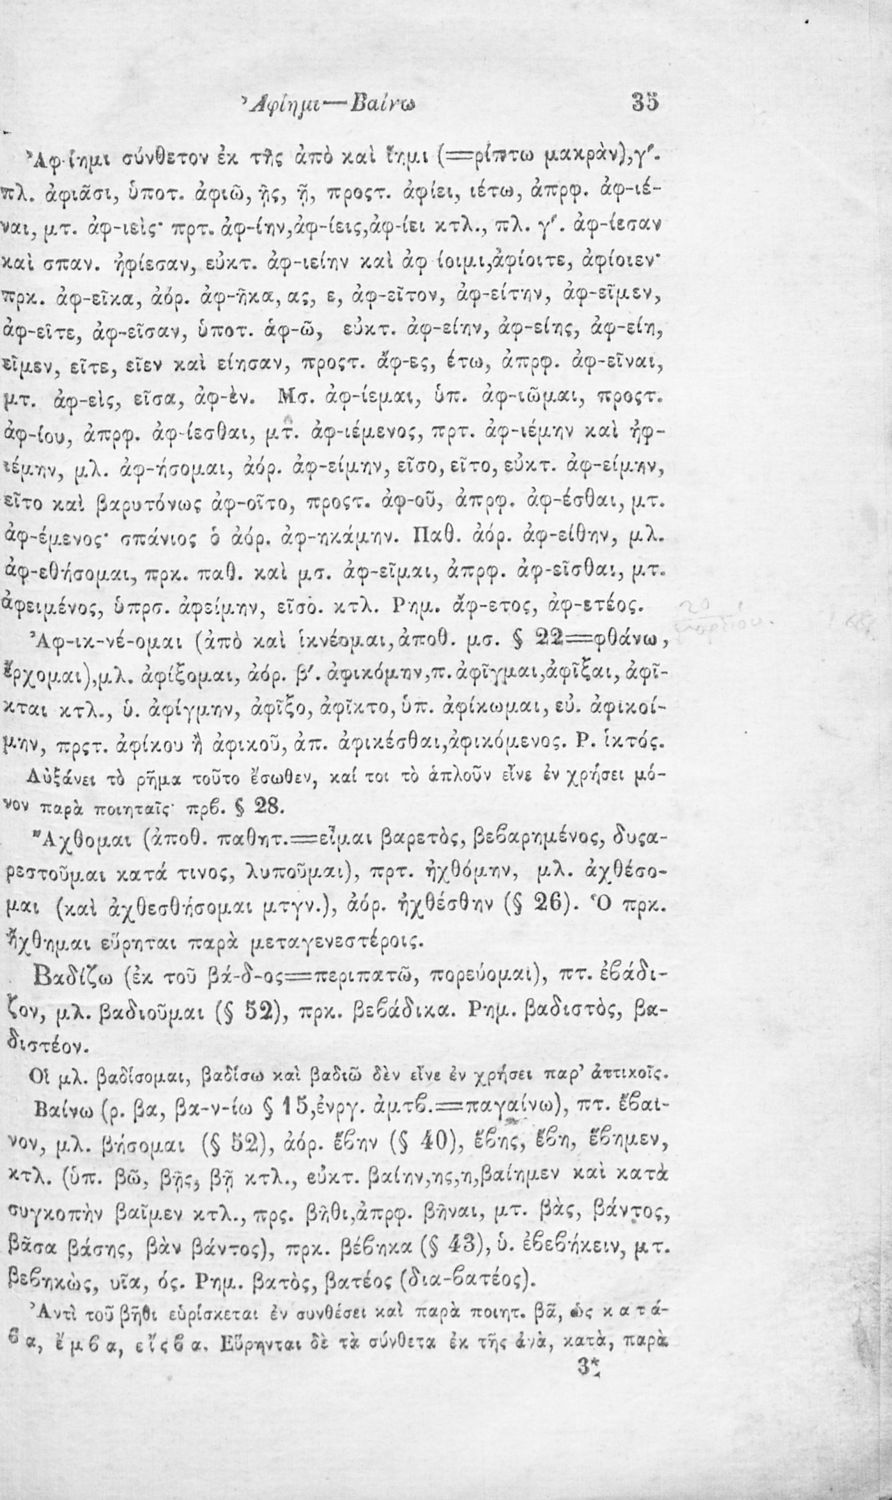 Ἀφίημι—Βαίνω 35
Ἀφ-ίημι σύνθετον ἐκ τῆς ἀπὸ καὶ ἵημι (=ρίπτω μακρὰν),γʹ.
πλ. ἀφιᾶσι, ὑποτ. ἀφιῶ, ῇς, ῇ, προςτ. ἀφίει, ιέτω, ἀπρφ. ἀφ-ιέ-
ναι, μτ. ἀφ-ιεὶς· πρτ. ἀφ-ίην,ἀφ-ίεις,ἀφ-ίει κτλ., πλ. γʹ. ἀφ-ίεσαν
καὶ σπαν. ἠφίεσαν, εὐκτ. ἀφ-ιείην καὶ ἀφ ίοιμι,ἀφίοιτε, ἀφίοιεν·
πρκ. ἀφ-εῖκα, ἀόρ. ἀφ-ῆκα, ας, ε, ἀφ-εῖτον, ἀφ-είτην, ἀφ-εῖμεν,
ἀφ-εῖτε, ἀφ-εῖσαν, ὑποτ. ἀφ-ῶ, εὐκτ. ἀφ-είην, ἀφ-είης, ἀφ-είη,
εῖμεν, εῖτε, εῖεν καὶ είησαν, προςτ. ἄφ-ες, έτω, ἀπρφ. ἀφ-εῖναι,
μτ. ἀφ-εὶς, εῖσα, ἀφ-ὲν. Μσ. ἀφ-ίεμαι, ὑπ. ἀφ-ιῶμαι, προςτ.
ἀφ-ίου, ἀπρφ. ἀφ-ίεσθαι, μτ. ἀφ-ιέμενος, πρτ. ἀφ-ιέμην καὶ ἠφ-
ιέμην, μλ. ἀφ-ήσομαι, ἀόρ. ἀφ-είμην, εῖσο, εῖτο, εὐκτ. ἀφ-είμην,
εῖτο καὶ βαρυτόνως ἀφ-οῖτο, προςτ. ἀφ-οῦ, ἀπρφ. ἀφ-έσθαι, μτ.
ἀφ-έμενος· σπάνιος ὁ ἀόρ. ἀφ-ηκάμην. Παθ. ἀόρ. ἀφ-είθην, μλ.
ἀφ-εθήσομαι, πρκ. παθ. καὶ μσ. ἀφ-εῖμαι, ἀπρφ. ἀφ-εῖσθαι, μτ.
ἀφειμένος, ὑπρσ. ἀφείμην, εῖσο. κτλ. Ρημ. ἄφ-ετος, ἀφ-ετέος.
Ἀφ-ικ-νέ-ομαι (ἀπὸ καὶ ἱκνέομαι,ἀποθ. μσ. § 22=φθάνω,
ἔρχομαι),μλ. ἀφίξομαι, ἀόρ. βʹ. ἀφικόμην,π. ἀφῖγμαι,ἀφῖξαι, ἀφῖ-
κται κτλ., ὑ. ἀφίγμην, ἀφῖξο, ἀφῖκτο, ὑπ. ἀφίκωμαι, εὐ. ἀφικοί-
μην, πρςτ. ἀφίκου ἢ ἀφικοῦ, ἀπ. ἀφικέσθαι,ἀφικόμενος. Ρ. ἱκτός.
Αὐξάνει τὸ ρῆμα τοῦτο ἔσωθεν, καί τοι τὸ ἁπλοῦν εἶνε ἐν χρήσει μό-
νον παρὰ ποιηταῖς· πρϐ. § 28.
Ἄχθομαι (ἀποθ. παθητ.=εἶμαι βαρετὸς, βεϐαρημένος, δυςα-
ρεστοῦμαι κατά τινος, λυποῦμαι), πρτ. ἠχθόμην, μλ. ἀχθέσο-
μαι (καὶ ἀχθεσθήσομαι μτγν.), ἀόρ. ἠχθέσθην (§ 26). Ὁ πρκ.
ἤχθημαι εὕρηται παρὰ μεταγενεστέροις.
Βαδίζω (ἐκ τοῦ βά-δ-ος=περιπατῶ, πορεύομαι), πτ. ἐϐάδι-
ζον, μλ. βαδιοῦμαι (§ 52), πρκ. βεϐάδικα. Ρημ. βαδιστὸς, βα-
διστέον.
Οἱ μλ. βαδίσομαι, βαδίσω καὶ βαδιῶ δὲν εἶνε ἐν χρήσει παρ’ ἀττικοῖς.
Βαίνω (ρ. βα, βα-ν-ίω § 15,ἐνργ. ἀμτϐ.=παγαίνω), πτ. ἔϐαι-
νον, μλ. βήσομαι (§ 52), ἀόρ. ἔϐην (§ 40), ἔϐης, ἔϐη, ἔϐημεν,
κτλ. (ὑπ. βῶ, βῇς, βῇ κτλ., εὐκτ. βαίην,ης,η,βαίημεν καὶ κατὰ
συγκοπὴν βαῖμεν κτλ., πρς. βῆθι,ἀπρφ. βῆναι, μτ. βὰς, βάντος,
βᾶσα βάσης, βὰν βάντος), πρκ. βέϐηκα (§ 43), ὑ. ἐϐεϐήκειν, μτ.
βεϐηκὼς, υῖα, ός. Ρημ. βατὸς, βατέος (δια-ϐατέος).
Ἀντὶ τοῦ βῆθι εὑρίσκεται ἐν συνθέσει καὶ παρὰ ποιητ. βᾶ, ὡς κατά-
ϐα, ἔμϐα, εἴςϐα. Εὕρηνται δὲ τὰ σύνθετα ἐκ τῆς ἀνὰ, κατὰ, παρὰ
3*